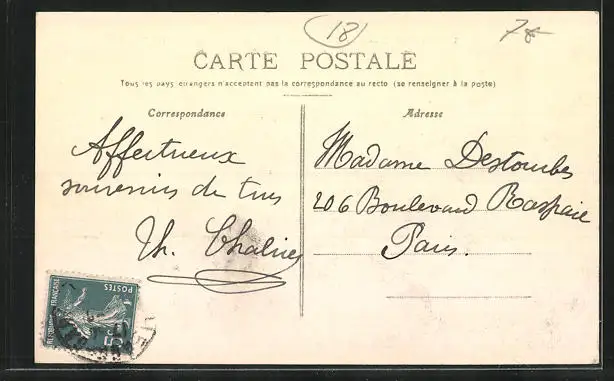 18
CARTE POSTALE
Tous les pays étrangers n'acceptent pas la correspondance au recto (se renseigner à la poste)
Correspondance
Adresse
Affectueux
souvenirs de tous
Th.
Madame Destombes
206 Boulevard Raspail
Paris.
POSTES
REPUBLIQUE FRANÇAISE
5c